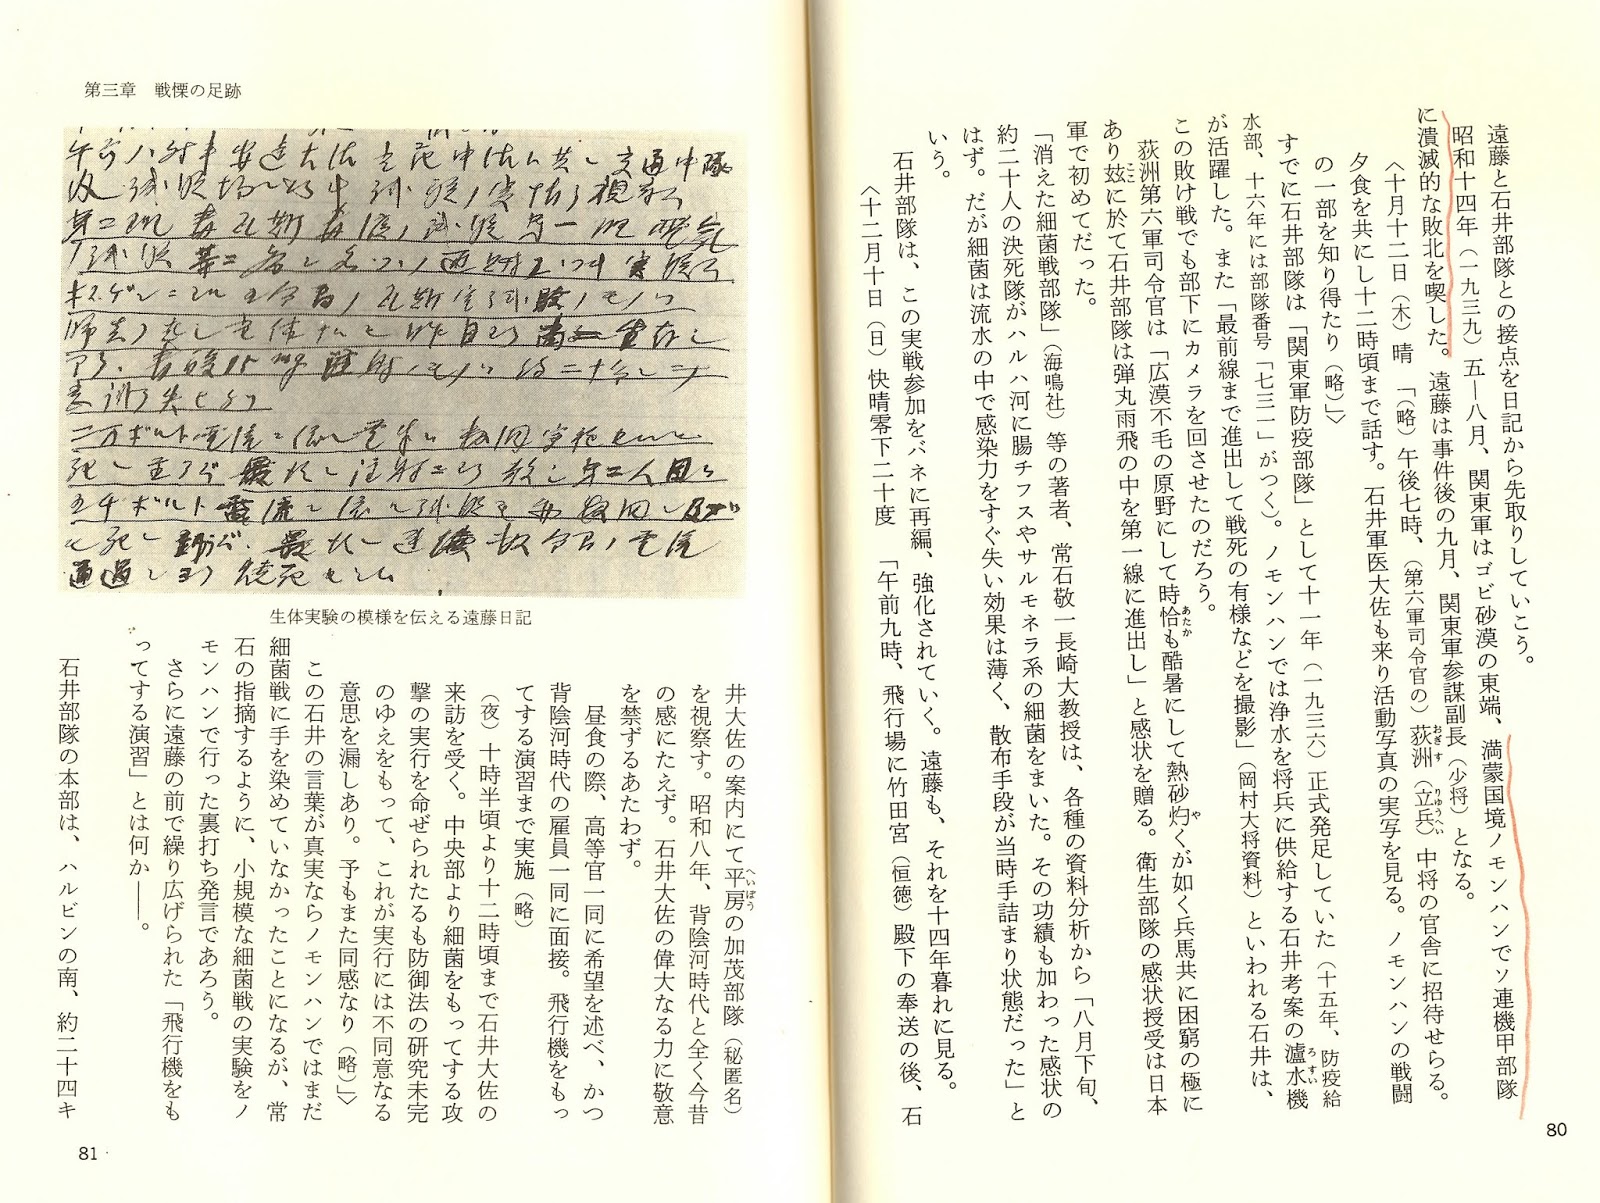 遠藤と石井部隊との接点を日記から先取りしていこう。
昭和十四年（一九三九）五―八月、関東軍はゴビ砂漠の東端、満蒙国境ノモンハンでソ連機甲部隊
に潰滅的な敗北を喫した。遠藤は事件後の九月、関東軍参謀副長（少将）となる。
おぎす　りゅうへい
〈十月十二日（木）晴　「（略）午後七時、（第六軍司令官の）荻洲（立兵）中将の官舎に招待せらる。
夕食を共にし十二時頃まで話す。石井軍医大佐も来り活動写真の実写を見る。ノモンハンの戦闘
の一部を知り得たり（略）」〉
ろすい
すでに石井部隊は「関東軍防疫部隊」として十一年（一九三六）正式発足していた（十五年、防疫給
水部、十六年には部隊番号「七三一」がつく）。ノモンハンでは浄水を将兵に供給する石井考案の瀘水機
が活躍した。また「最前線まで進出して戦死の有様などを撮影」（岡村大将資料）といわれる石井は、
この敗け戦でも部下にカメラを回させたのだろう。
あたか　や
荻洲第六軍司令官は「広漠不毛の原野にして時恰も酷暑にして熱砂灼くが如く兵馬共に困窮の極に
ここ
あり玆に於て石井部隊は弾丸雨飛の中を第一線に進出し」と感状を贈る。衛生部隊の感状授受は日本
軍で初めてだった。
「消えた細菌戦部隊」（海鳴社）等の著者、常石敬一長崎大教授は、各種の資料分析から「八月下旬、
約二十人の決死隊がハルハ河に腸チフスやサルモネラ系の細菌をまいた。その功績も加わった感状の
はず。だが細菌は流水の中で感染力をすぐ失い効果は薄く、散布手段が当時手詰まり状態だった」と
いう。
石井部隊は、この実戦参加をバネに再編、強化されていく。遠藤も、それを十四年暮れに見る。
〈十二月十日（日）快晴零下二十度　「午前九時、飛行場に竹田宮（恒徳）殿下の奉送の後、石
80
第三章　戦慄の足跡
午前八時半安達大佐立花中佐と共に交通中隊
意識を失ひたり
死に至らず
通過により焼死せしむ
生体実験の模様を伝える遠藤日記
へいぼう
井大佐の案内にて平房の加茂部隊（秘匿名）
を視察す。昭和八年、背陰河時代と全く今昔
の感にたえず。石井大佐の偉大なる力に敬意
を禁ずるあたわず。
昼食の際、高等官一同に希望を述べ、かつ
背陰河時代の雇員一同に面接。飛行機をもっ
てする演習まで実施（略）
（夜）十時半頃より十二時頃まで石井大佐の
来訪を受く。中央部より細菌をもってする攻
撃の実行を命ぜられたるも防御法の研究未完
のゆえをもって、これが実行には不同意なる
意思を漏しあり。予もまた同感なり（略）」〉
この石井の言葉が真実ならノモンハンではまだ
細菌戦に手を染めていなかったことになるが、常
石の指摘するように、小規模な細菌戦の実験をノ
モンハンで行った裏打ち発言であろう。
さらに遠藤の前で繰り広げられた「飛行機をも
ってする演習」とは何か――。
石井部隊の本部は、ハルビンの南、約二十四キ
81